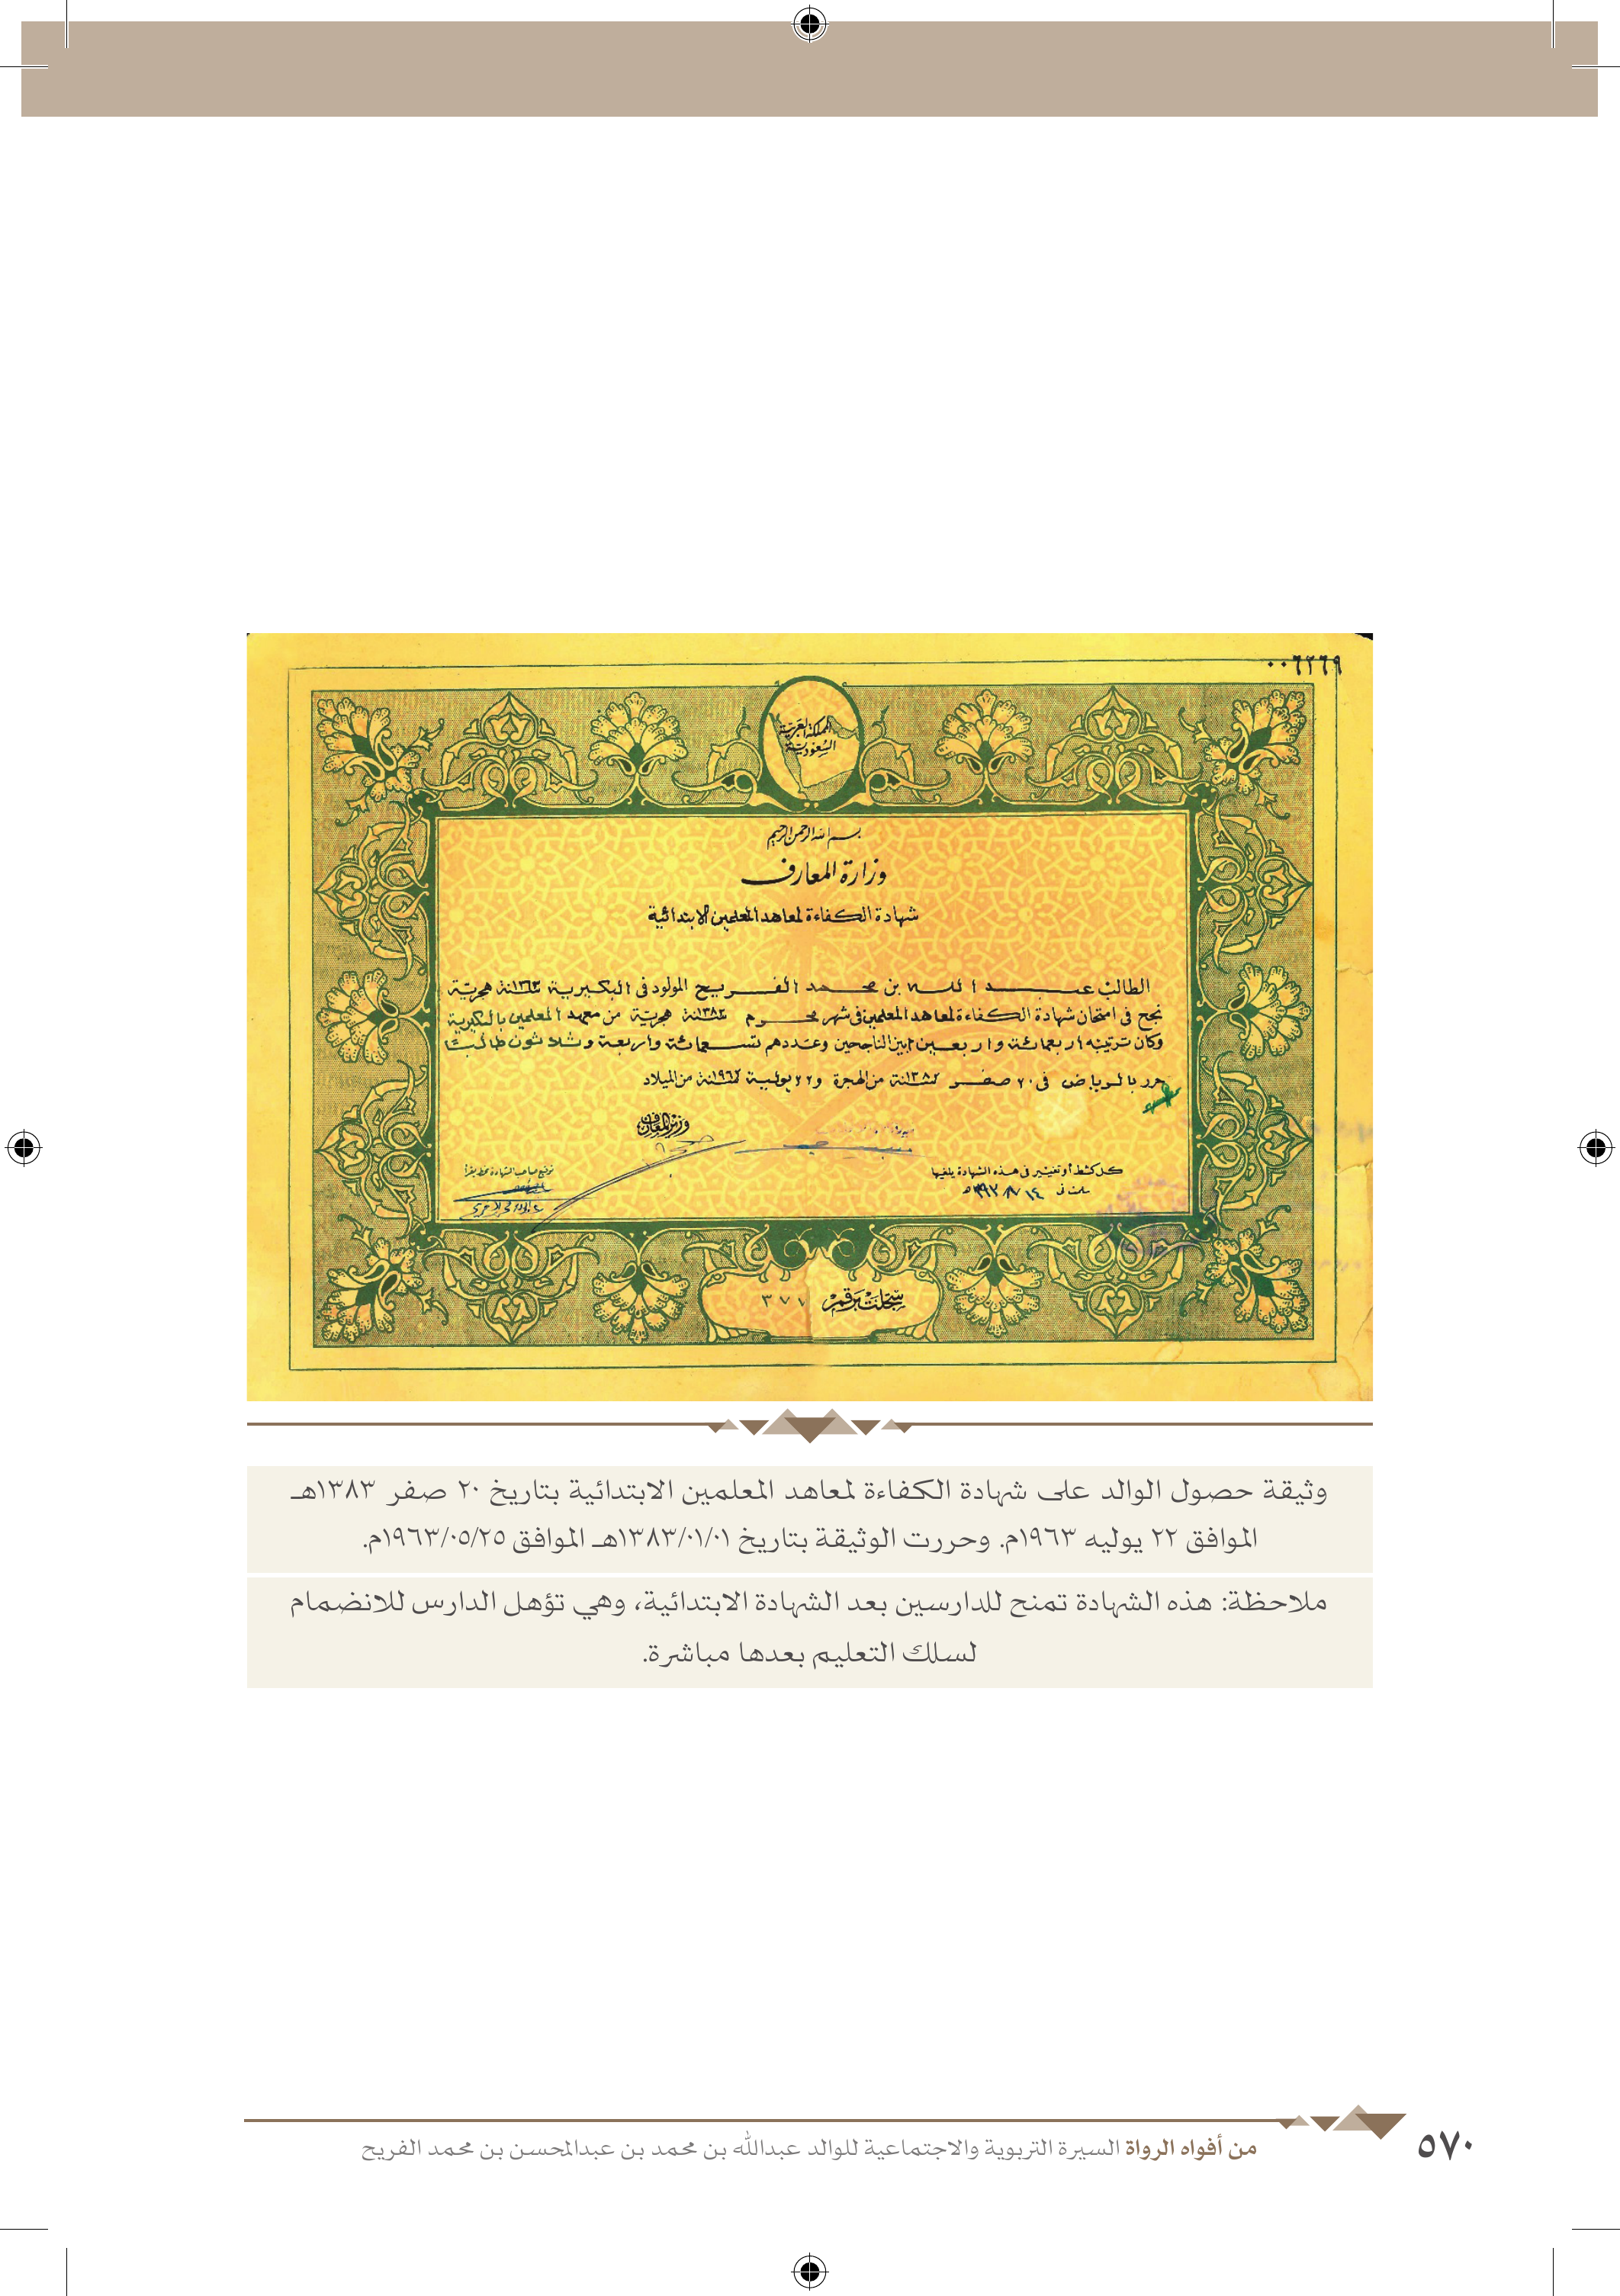 ٠٠٦٢٦٩
المملكة العربية
السعودية
بسم الله الرحمن الرحيم
وزارة المعارف
شهادة الكفاءة لمعاهد المعلمين الابتدائية
الطالب عبد الله بن محمد الفريح المولود في البكيرية سنة ١٣٦٣ هجرية
نجح في امتحان شهادة الكفاءة لمعاهد المعلمين في شهر محرم سنة ١٣٨٣ هجرية من معهد المعلمين بالبكيرية
وكان ترتيبه اربعمائة واربعين بين الناجحين وعددهم تسعمائة واربعة وثلاثون طالبا
حرر بالرياض في ٢٠ صفر سنة من الهجرة و٢٢ يولية سنة من الميلاد
وزير المعارف
توقيع صاحب الشهادة
كل كشط أو تغيير في هذه الشهادة يلغيها
سجلت برقم ٣٧٧
وثيقة حصول الوالد على شهادة الكفاءة لمعاهد المعلمين الابتدائية بتاريخ ٢٠ صفر ١٣٨٣هـ
الموافق ٢٢ يوليه ١٩٦٣م. وحررت الوثيقة بتاريخ ١٣٨٣/٠١/٠١هـ الموافق ١٩٦٣/٠٥/٢٥م.
ملاحظة: هذه الشهادة تمنح للدارسين بعد الشهادة الابتدائية، وهي تؤهل الدارس للانضمام
لسلك التعليم بعدها مباشرة.
من أفواه الرواة السيرة التربوية والاجتماعية للوالد عبدالله بن محمد بن عبدالمحسن بن محمد الفريح
٥٧٠